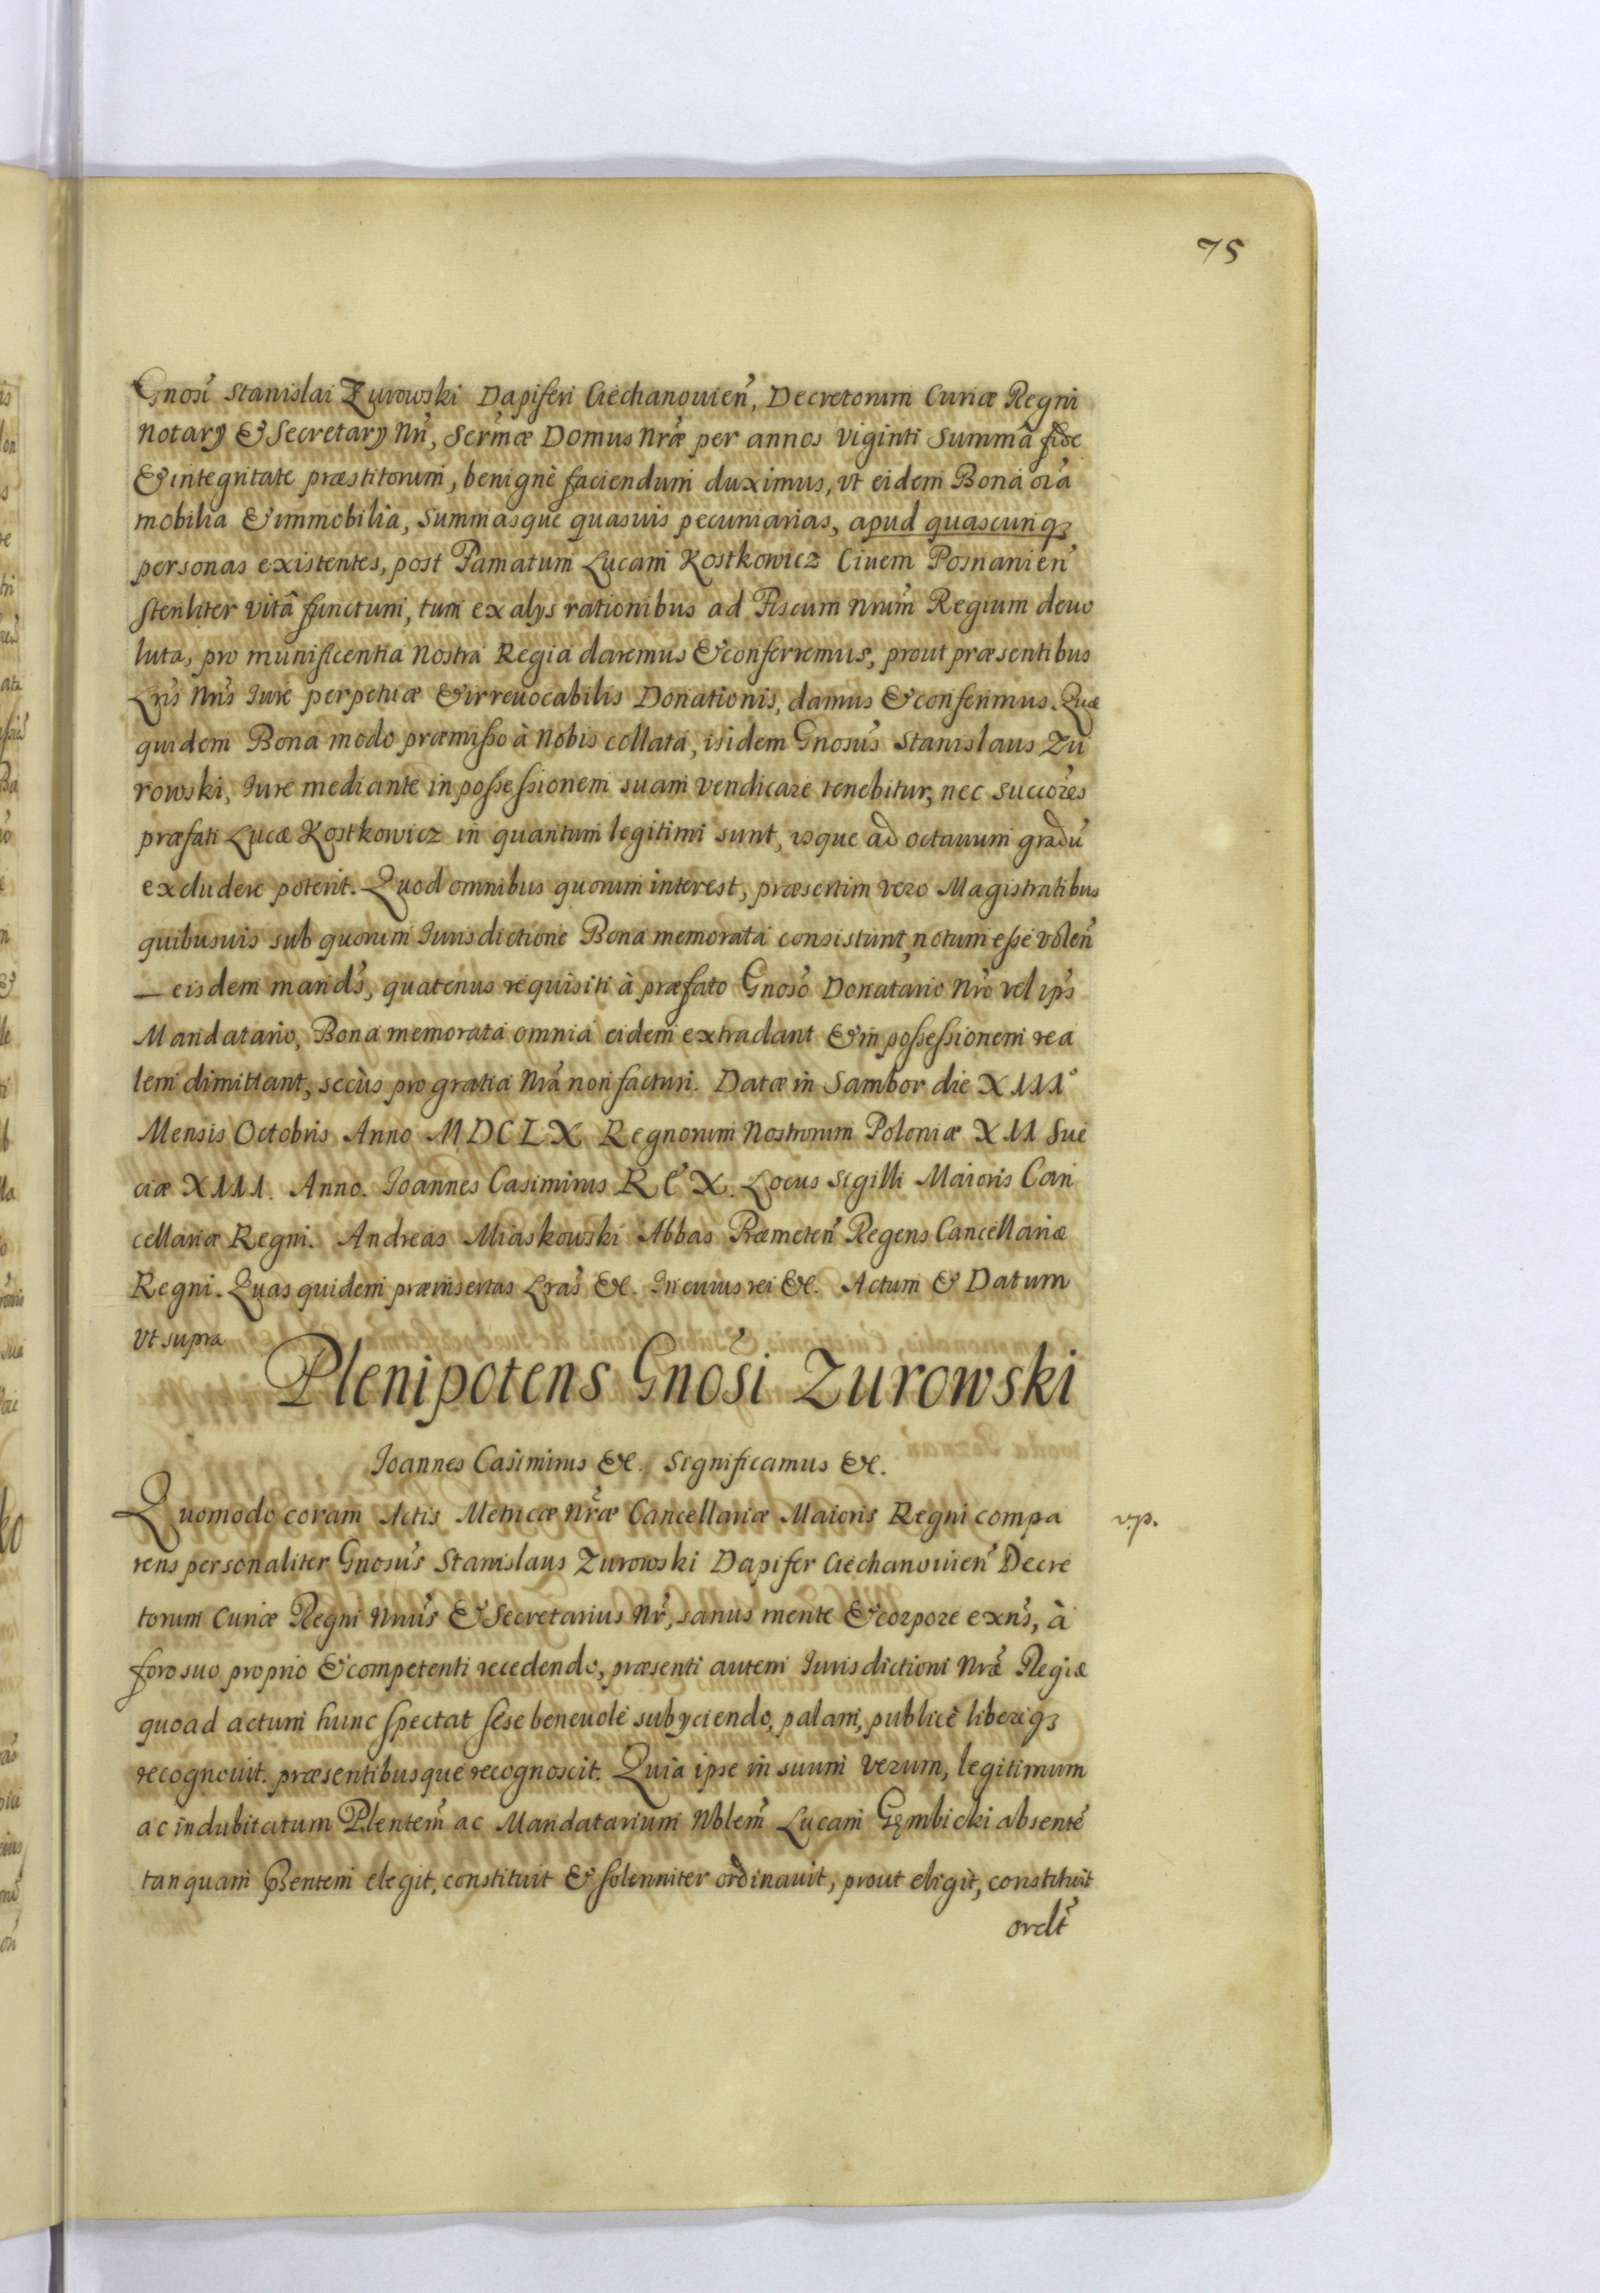 75
Gnosi Stanislai Zurowski Dapiferi Ciechanouień, Decretorum Curiæ Regni
Notarÿ & Secretarÿ Nri, Sermæ Domus Nræ per annos viginti Summâ fide
& integritate præstitorum, benignè faciendum duximus, vt eidem Bona oia
mobilia & immobilia, Summasque quasuis pecuniarias, apud quascunqꝫ
personas existentes, post Famatum Lucam Kostkowicz Ciuem Posnanień
steriliter vitâ functum, tum ex alÿs rationibus ad Fiscum Nrum Regium deuo
luta, pro munificentia Nostra Regia daremus & conferremus, prout præsentibus
Lris Nris Iure perpetuæ & irreuocabilis Donationis, damus & conferimus. Quæ
quidem Bona modo præmisso à Nobis collata, isidem Gnosus Stanislaus Zu
rowski, Iure mediante in possessionem suam vendicare tenebitur, nec Succores
præfati Lucæ Kostkowicz in quantum legitimi sunt, vsque ad octauum gradū
excludere poterit. Quod omnibus quorum interest, præsertim vero Magistratibus
quibusuis sub quorum Iurisdictione Bona memorata consistunt, notum esse voleń
— eisdem mands, quatenus requisiti à præfato Gnoso Donatario Nro vel ips
Mandatario, Bona memorata omnia eidem extradant & in possessionem rea
lem dimittant, secùs pro gratia Nra non facturi. Datæ in Sambor die XIII°
Mensis Octobris Anno MDCLX Regnorum Nostrorum Poloniæ XII Sue
ciæ XIII. Anno. Ioannes Casimirus REX. Locus Sigilli Maioris Can
cellariæ Regni. Andreas Miaskowski Abbas Præmeteń Regens Cancellariæ
Regni. Quas quidem præinsertas Lras &c. In cuius rei &c. Actum & Datum
vt supra
Plenipotens Gnosi Zurowski
Ioannes Casimirus &c. Significamus &c.
Quomodo coram Actis Metricæ Nræ Cancellariæ Maioris Regni compa
r.p.
rens personaliter Gnosus Stanislaus Zurowski Dapifer Ciechanouień Decre
torum Curiæ Regni Nrius & Secretarius Nr, sanus mente & corpore exns, à
foro suo proprio & competenti recedendo, præsenti autem Iurisdictioni Nræ Regiæ
quoad actum hunc spectat sese beneuolè subÿciendo, palam, publicè libereqꝫ
recognouit. præsentibusque recognoscit. Quia ipse in suum verum, legitimum
ac indubitatum Plentem ac Mandatarium Nblem Lucam Gęmbicki absentē
tanquam pñtem elegit, constituit & solenniter ordinauit, prout eligit, constituit
ordt